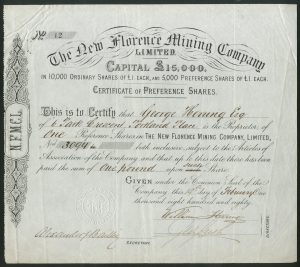 No 12
The New Florence Mining Company
LIMITED.
CAPITAL £15,000,
IN 10,000 ORDINARY SHARES OF £1. EACH, AND 5,000 PREFERENCE SHARES OF £1. EACH.
CERTIFICATE OF PREFERENCE SHARES.
This is to Certify that George Herring Esq
of 1 Park Crescent, Portland Place is the Proprietor of
One Preference Shares in THE NEW FLORENCE MINING COMPANY, LIMITED,
Nos 3094 both inclusive, subject to the Articles of
Association of the Company and that up to this date there has been
paid the sum of One pound upon Share
GIVEN under the Common Seal of the
Company this day of February
one thousand eight hundred and eighty
William Herring
DIRECTORS.
SECRETARY.
N.F.M.C.L.